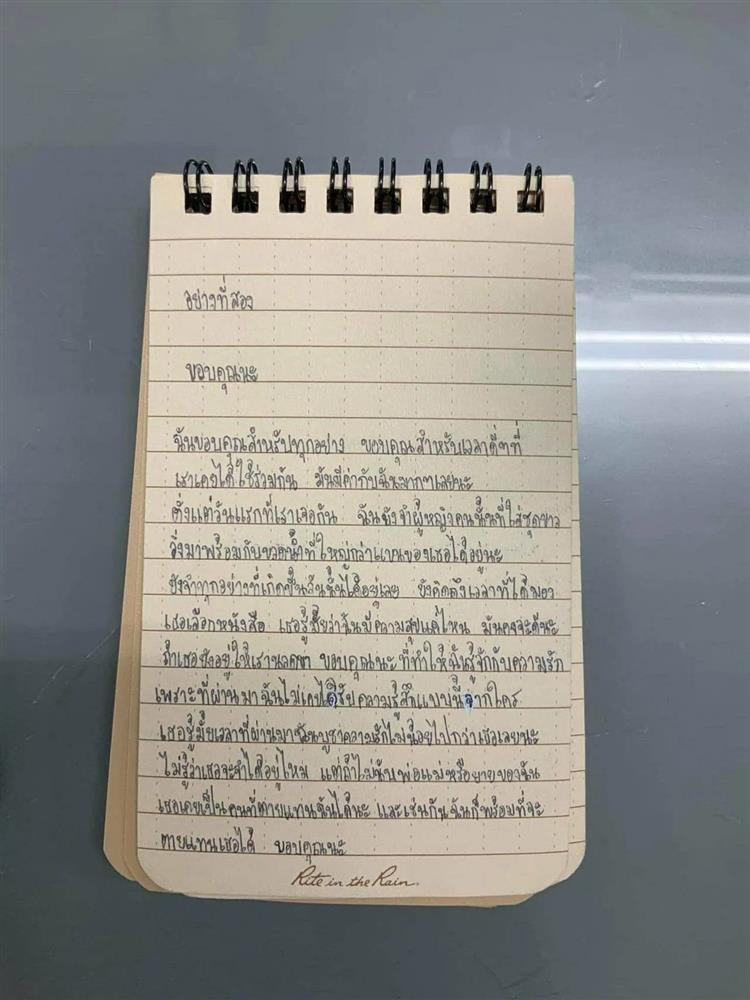 อย่างที่สอง
ขอบคุณนะ
ฉันขอบคุณสำหรับทุกอย่าง ขอบคุณสำหรับเวลาดีๆที่
เราเคยได้ใช้ร่วมกัน มันมีค่ากับฉันมากๆเลยนะ
ตั้งแต่วันแรกที่เราเจอกัน ฉันยังจำผู้หญิงคนนั้นที่ใส่ชุดขาว
วิ่งมาพร้อมกับขวดน้ำที่ใหญ่กว่าแขนของเธอได้อยู่นะ
ยังจำทุกอย่างที่เกิดขึ้นวันนั้นได้อยู่เลย ยังคิดถึงเวลาที่ได้มอง
เธอเลือกหนังสือ เธอรู้มั้ยว่าฉันมีความสุขแค่ไหน มันคงจะดีนะ
ถ้าเธอยังอยู่ให้เรา ขอบคุณนะ ที่ทำให้ฉันรู้จักกับความรัก
เพราะที่ผ่านมา ฉันไม่เคยได้รับ ความรู้สึกแบบนี้จากใคร
เธอรู้มั้ยเวลาที่ผ่านมาฉันบูชาความรักไม่น้อยไปกว่าเธอเลยนะ
ไม่รู้ว่าเธอจะจำได้อยู่ไหม แต่ถ้าไม่นับพ่อแม่หรือยายของฉัน
เธอเคยเป็นคนที่ตายแทนฉันได้นะ และเช่นกัน ฉันก็พร้อมที่จะ
ตายแทนเธอได้ ขอบคุณนะ
Rite in the Rain